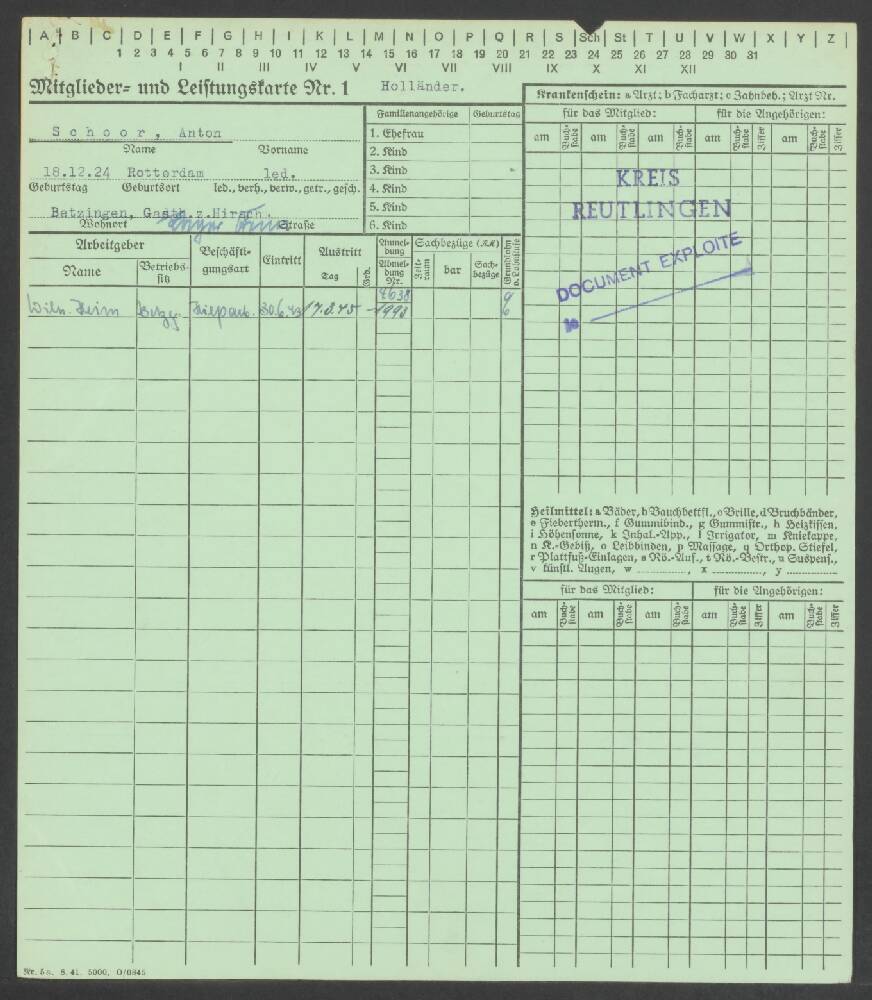 A B C D E F G H I K L M N O P Q R S Sch St T U V W X Y Z
1 2 3 4 5 6 7 8 9 10 11 12 13 14 15 16 17 18 19 20 21 22 23 24 25 26 27 28 29 30 31
I II III IV V VI VII VIII IX X XI XII
Mitglieder- und Leistungskarte Nr. 1 Holländer.
Schoor, Anton
Name Vorname
18.12.24 Rotterdam led.
Geburtstag Geburtsort led., verh., verw., getr., gesch.
Betzingen, Gasth.z.Hirsch.
Wohnort Straße
Familienangehörige Geburtstag
1. Ehefrau
2. Kind
3. Kind
4. Kind
5. Kind
6. Kind
Arbeitgeber
Name Betriebs- sitz
Beschäfti- gungsart
Eintritt
Austritt
Tag Grd.
Anmel- dung
Abmel- dung Nr.
Sachbezüge (RM)
Zeit- raum bar Sach- bezüge
Grundlohn o. Lohnstufe
4638 9
Wilh. Heim Betzg. 30.6.43 17.2.45 1998 6
Krankenschein: a Arzt; b Facharzt; c Zahnbeh.; Arzt Nr.
für das Mitglied: für die Angehörigen:
am Buch- stabe am Buch- stabe am Buch- stabe am Buch- stabe Ziffer am Buch- stabe Ziffer
KREIS
REUTLINGEN
DOCUMENT EXPLOITE
le
Heilmittel: a Bäder, b Bauchbettfl., c Brille, d Bruchbänder,
e Fiebertherm., f Gummibind., g Gummistr., h Heizkissen,
i Höhensonne, k Inhal.-App., l Irrigator, m Kniekappe,
n K.-Gebiß, o Leibbinden, p Massage, q Orthop. Stiefel,
r Plattfuß-Einlagen, s Rö.-Auf., t Rö.-Bestr., u Suspens.,
v künstl. Augen, w ............, x ............, y ............
für das Mitglied: für die Angehörigen:
am Buch- stabe am Buch- stabe am Buch- stabe am Buch- stabe Ziffer am Buch- stabe Ziffer
Nr. 5a. 8. 41. 5000. O/0845